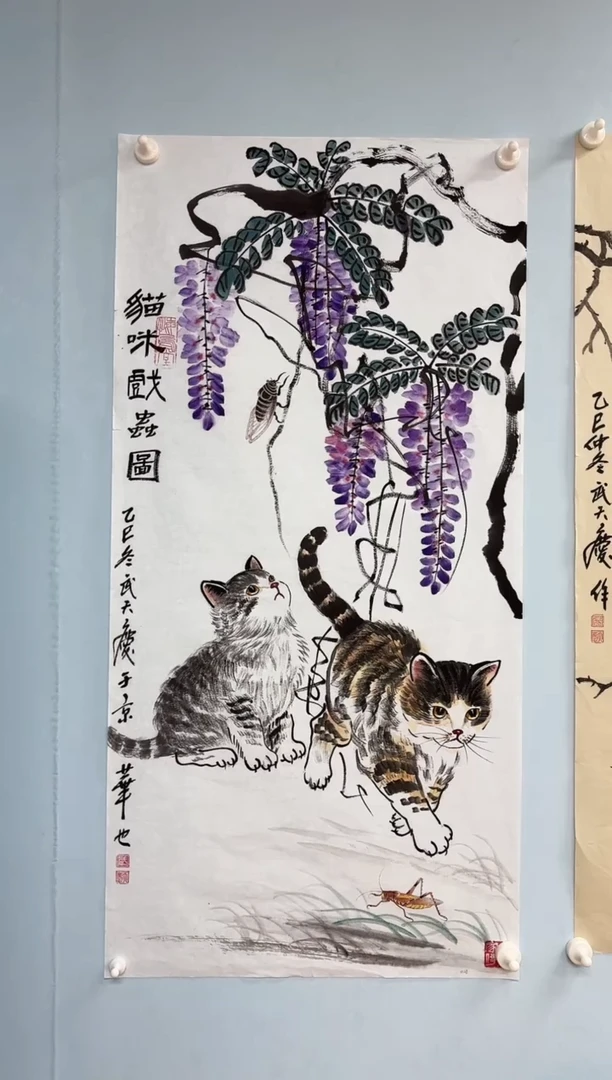 貓咪戲蟲圖
乙巳冬武大慶于京
華也
乙巳仲冬武大慶作